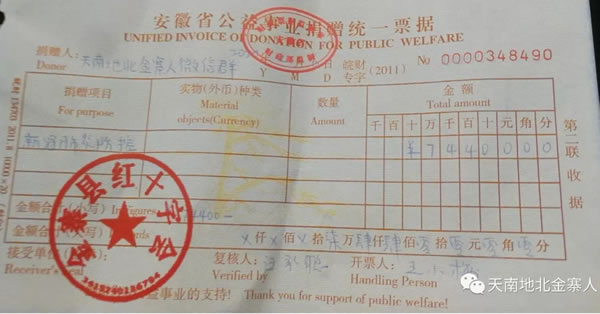 安徽省公益事业捐赠统一票据
UNIFIED INVOICE OF DONATION FOR PUBLIC WELFARE
捐赠人: 天南地北金寨人微信群 皖财
Donor Y M D 专字 (2011) № 0000348490
捐赠项目 实物(外币)种类 数量 金额
For purpose Material objects(Currency) Amount Total amount
千 百 十 万 千 百 十 元 角 分
新冠肺炎防控 ¥ 7 4 4 0 0 0 0
金额合计(小写) In Figures 4400-
金额合计 仟 佰 拾 柒 万 肆 仟 肆 佰 零 拾 零 元 零 角 零 分
接受单位 复核人: 开票人: 王小
Receiver's Seal Verified by Handling Person
益事业的支持! Thank you for support of public welfare!
第二联 收据
金寨县红十字会
天南地北金寨人